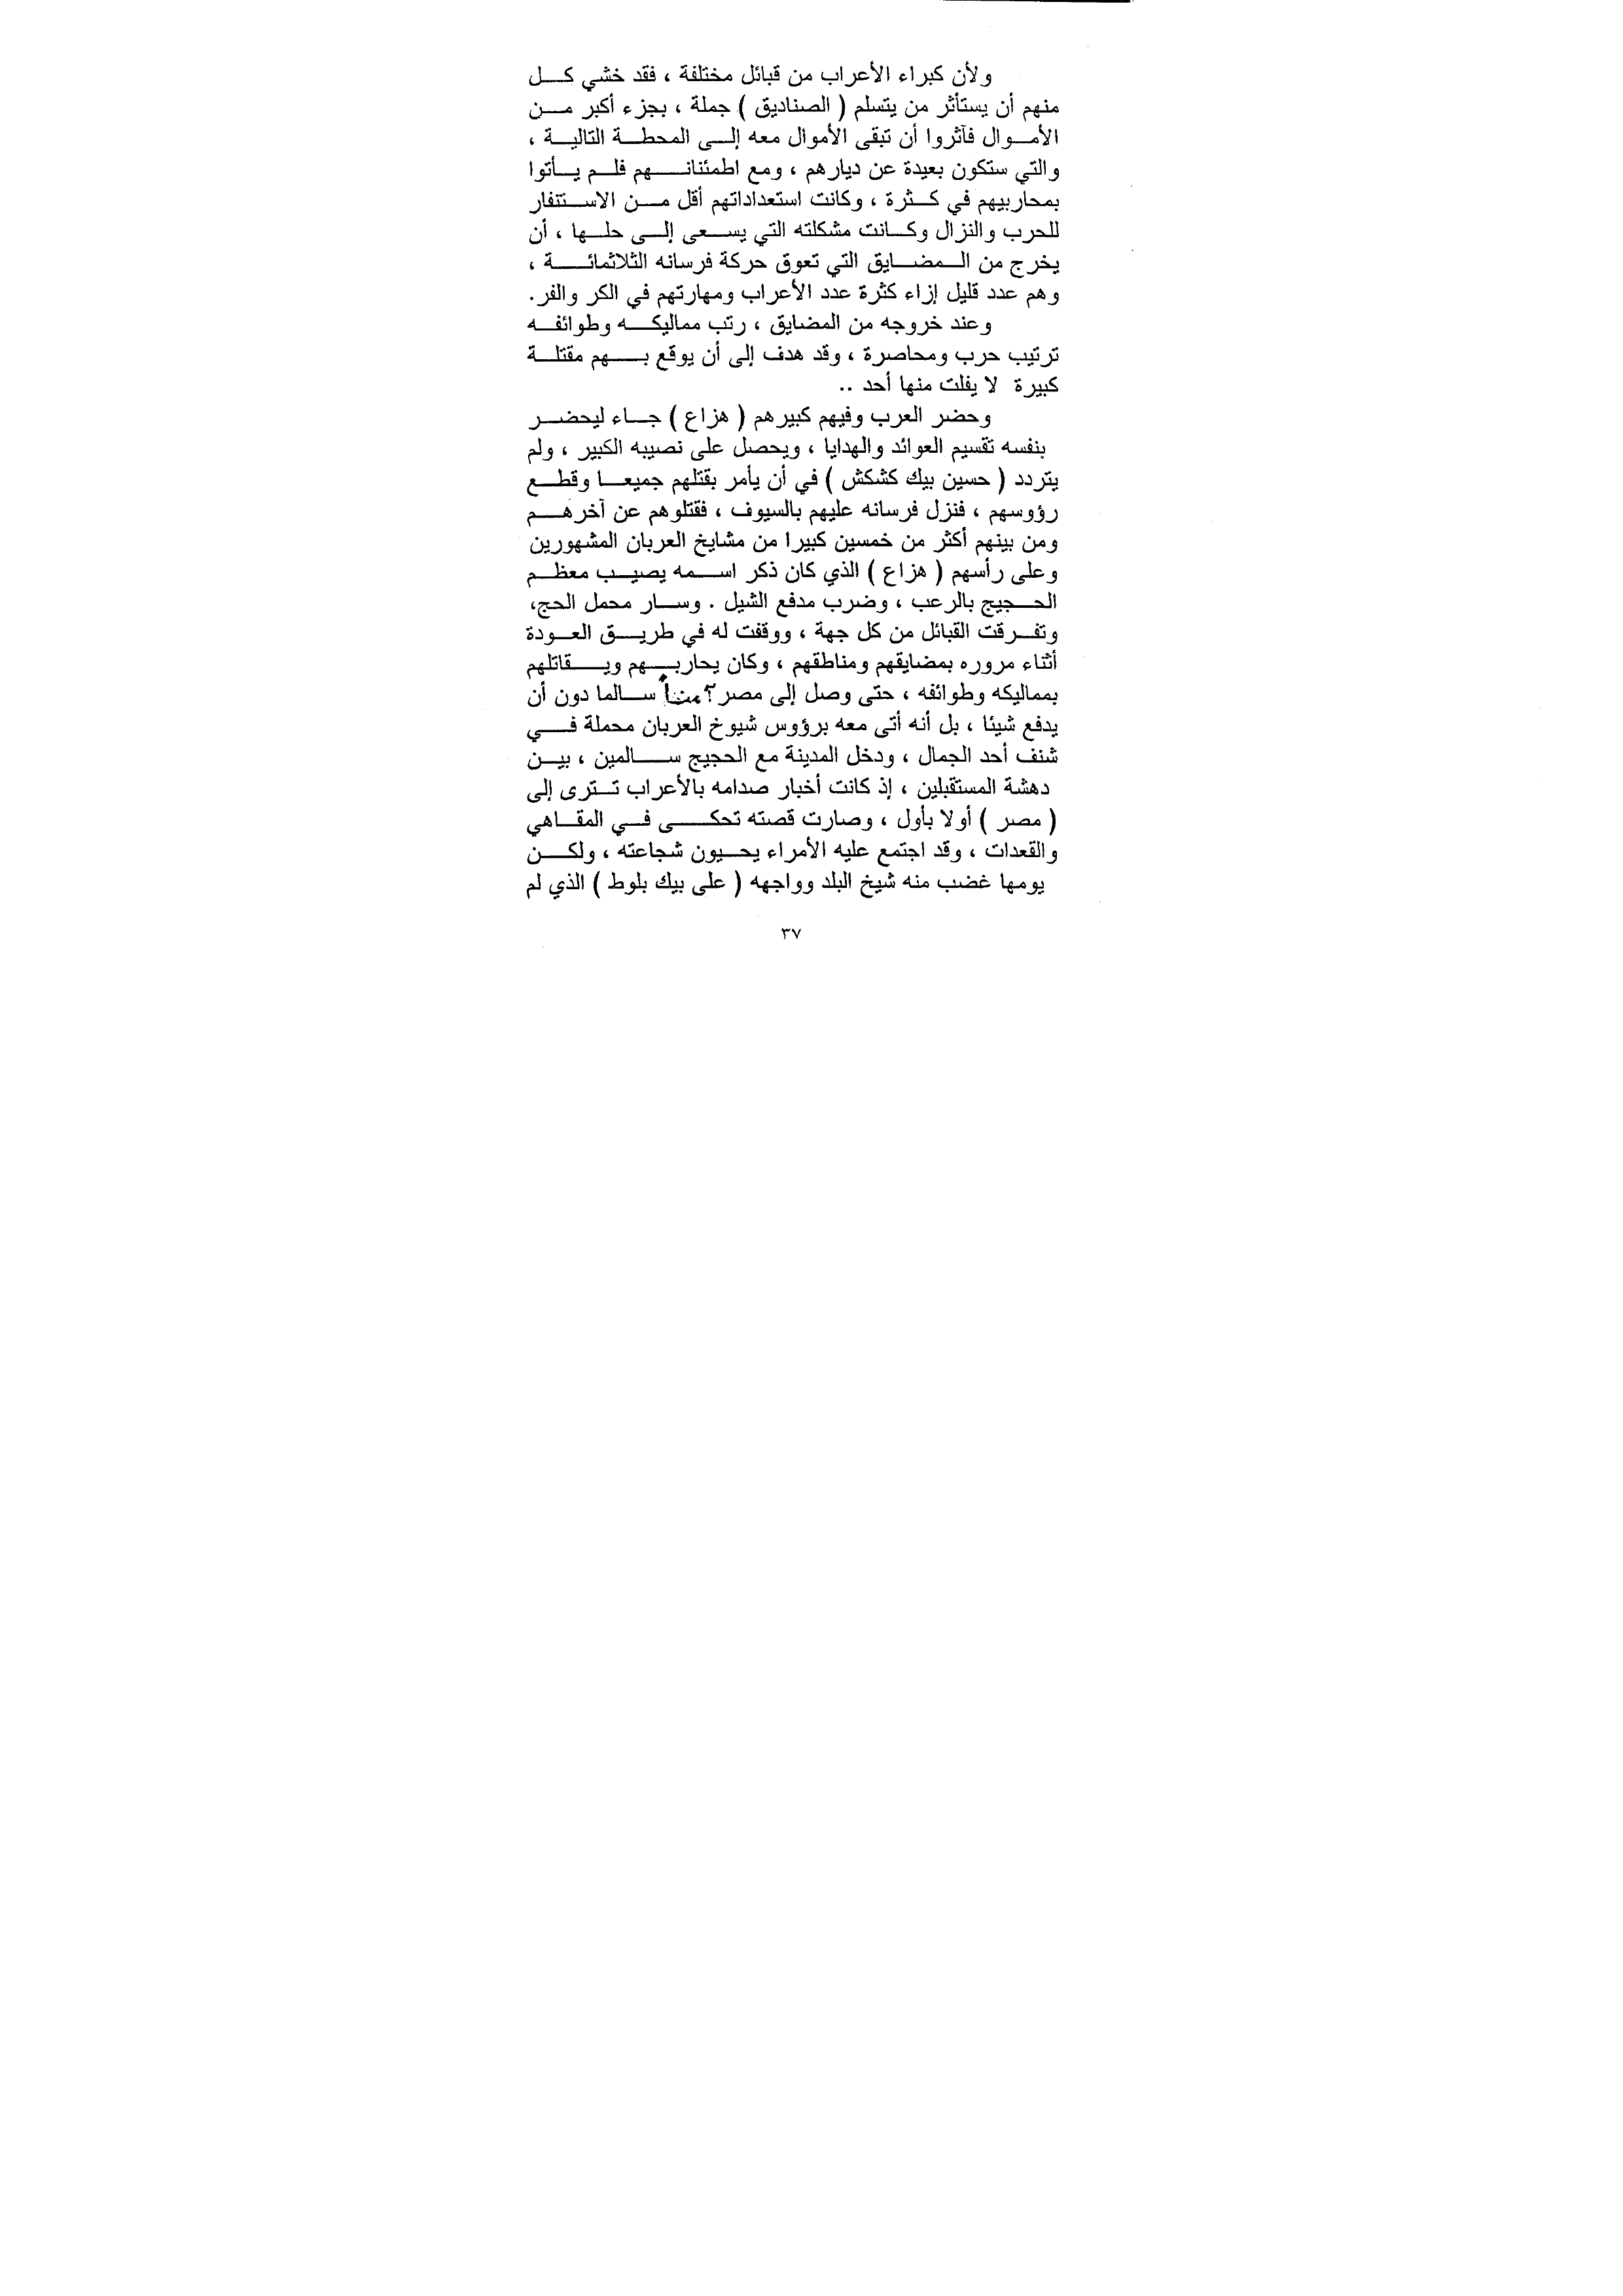 ولأن كبراء الأعراب من قبائل مختلفة ، فقد خشي كل
منهم أن يستأثر من يتسلم ( الصناديق ) جملة ، بجزء أكبر من
الأموال فآثروا أن تبقى الأموال معه إلى المحطة التالية ،
والتي ستكون بعيدة عن ديارهم ، ومع اطمئنانهم فلم يأتوا
بمحاربيهم في كثرة ، وكانت استعداداتهم أقل من الاستنفار
للحرب والنزال وكانت مشكلته التي يسعى إلى حلها ، أن
يخرج من المضايق التي تعوق حركة فرسانه الثلاثمائة ،
وهم عدد قليل إزاء كثرة عدد الأعراب ومهارتهم في الكر والفر.
وعند خروجه من المضايق ، رتب مماليكه وطوائفه
ترتيب حرب ومحاصرة ، وقد هدف إلى أن يوقع بهم مقتلة
كبيرة لا يفلت منها أحد ..
وحضر العرب وفيهم كبيرهم ( هزاع ) جاء ليحضر
بنفسه تقسيم العوائد والهدايا ، ويحصل على نصيبه الكبير ، ولم
يتردد ( حسين بيك كشكش ) في أن يأمر بقتلهم جميعا وقطع
رؤوسهم ، فنزل فرسانه عليهم بالسيوف ، فقتلوهم عن آخرهم
ومن بينهم أكثر من خمسين كبيرا من مشايخ العربان المشهورين
وعلى رأسهم ( هزاع ) الذي كان ذكر اسمه يصيب معظم
الحجيج بالرعب ، وضرب مدفع الشيل . وسار محمل الحج،
وتفرقت القبائل من كل جهة ، ووقفت له في طريق العودة
أثناء مروره بمضايقهم ومناطقهم ، وكان يحاربهم ويقاتلهم
بمماليكه وطوائفه ، حتى وصل إلى مصر آمناً سالما دون أن
يدفع شيئا ، بل أنه أتى معه برؤوس شيوخ العربان محملة في
شنف أحد الجمال ، ودخل المدينة مع الحجيج سالمين ، بين
دهشة المستقبلين ، إذ كانت أخبار صدامه بالأعراب تترى إلى
( مصر ) أولا بأول ، وصارت قصته تحكى في المقاهي
والقعدات ، وقد اجتمع عليه الأمراء يحيون شجاعته ، ولكن
يومها غضب منه شيخ البلد وواجهه ( على بيك بلوط ) الذي لم
٣٧